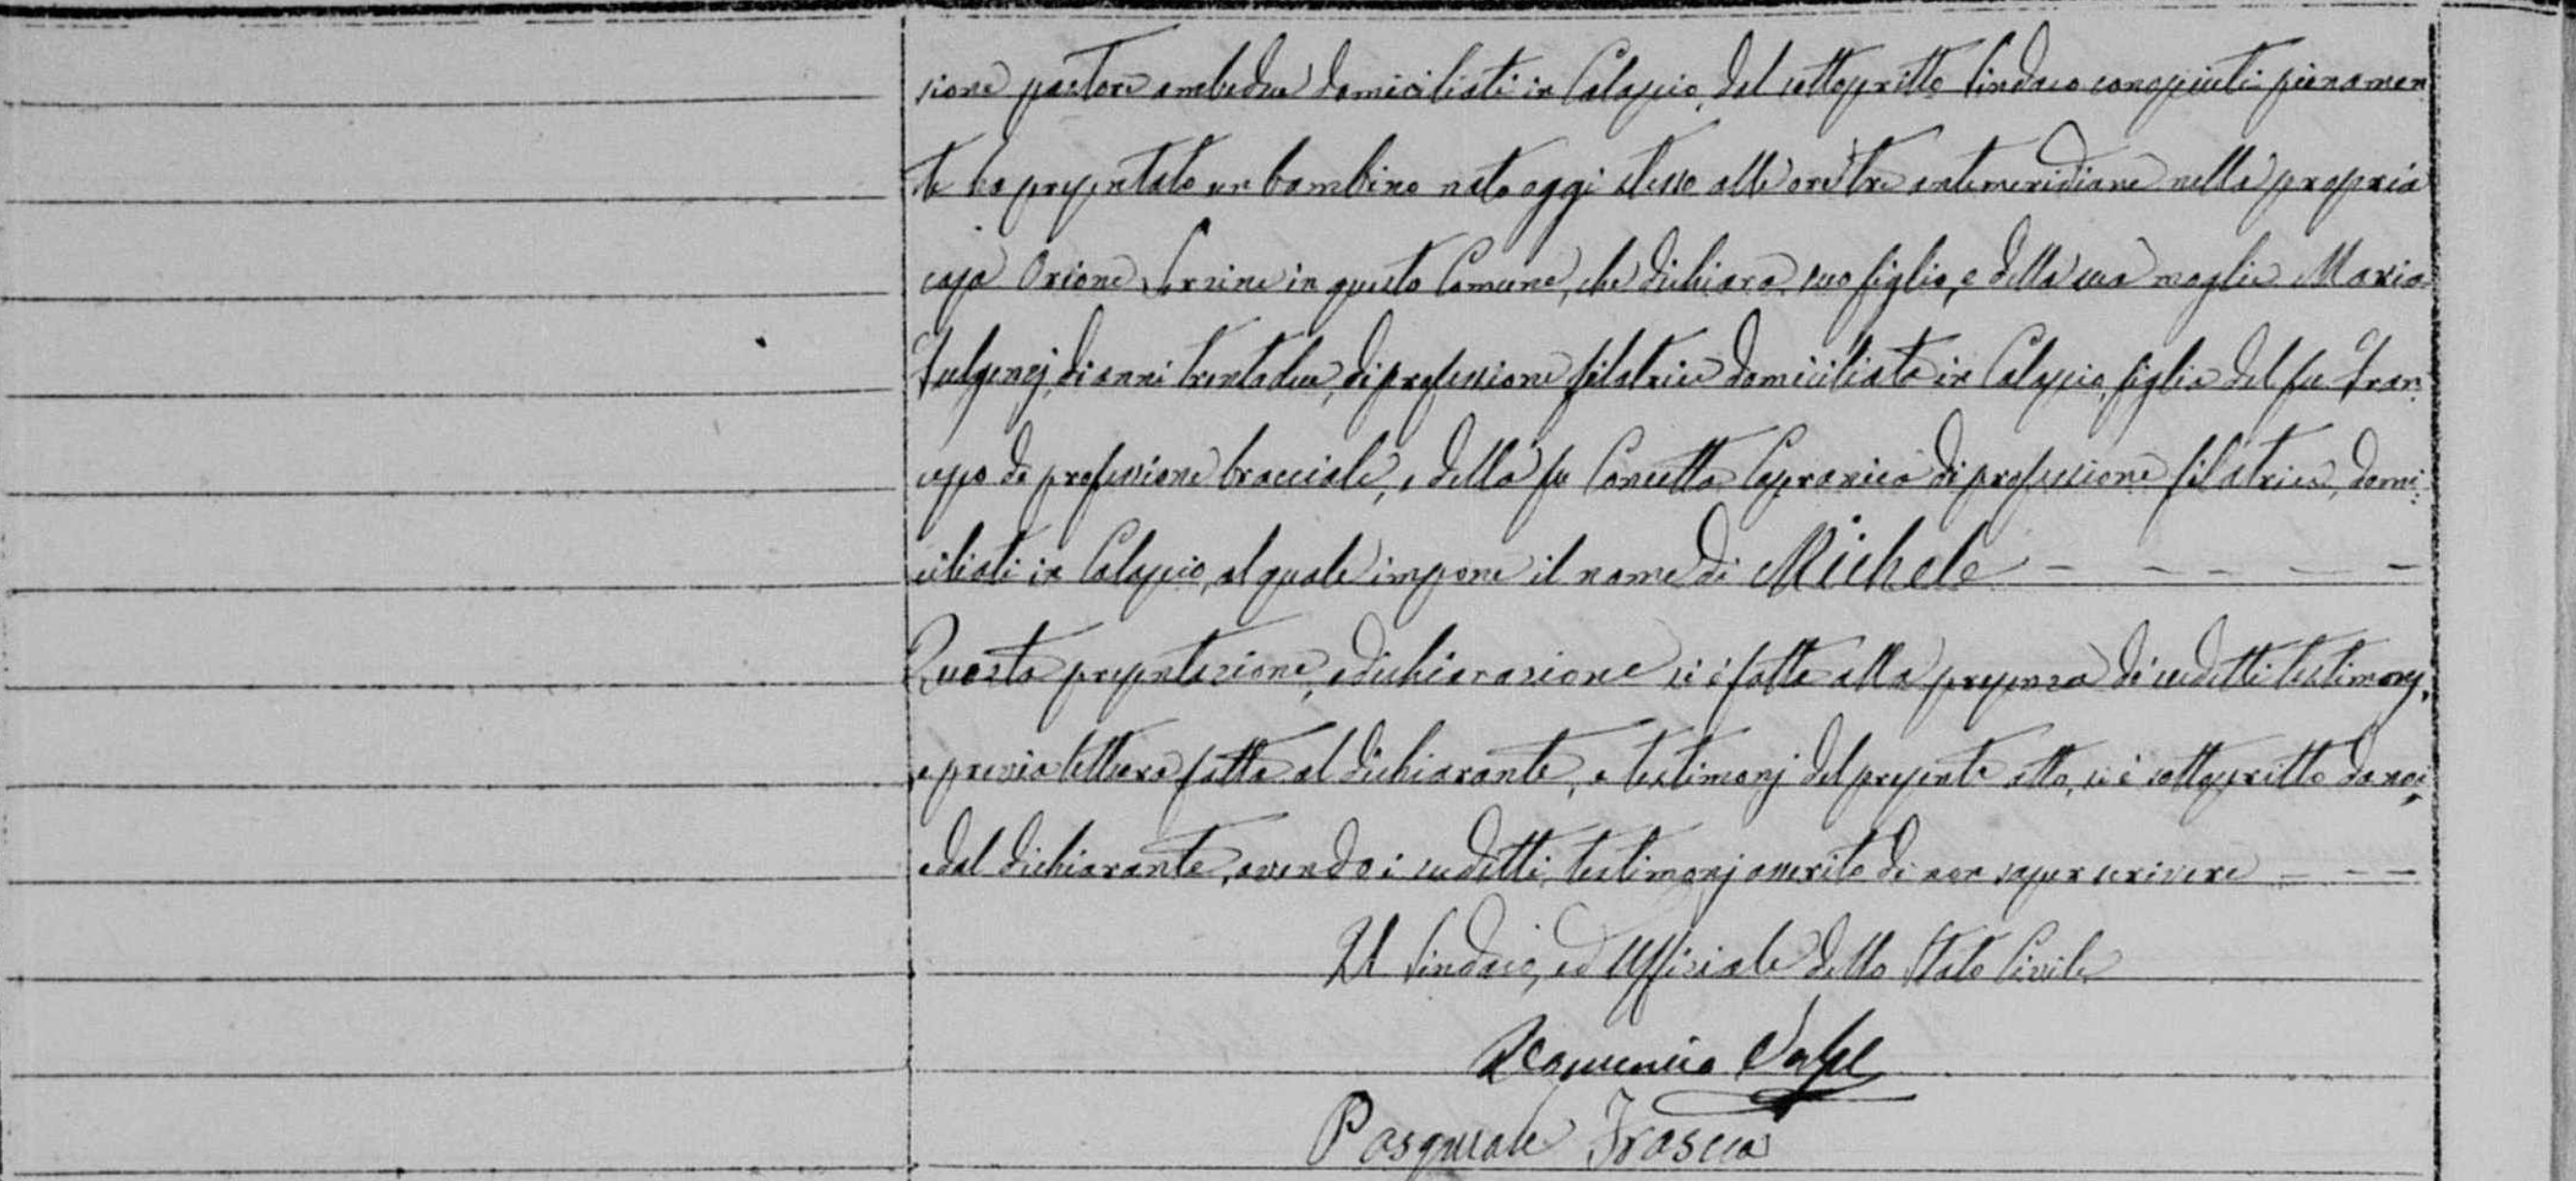 sione pastore ambedue domiciliati in Calascio, dal sottoscritto Sindaco conosciuti pienamen
te ha presentato un bambino nato oggi stesso alle ore tre antemeridiane nella propria
casa Orione in questo Comune, che dichiara suo figlio, e della sua moglie Maria
Fulgenzj, di anni trentadue, di professione filatrice domiciliata in Calascio, figlia del fu Fran
cesco di professione bracciale, e della fu Concetta Capranica di professione filatrice, domi
ciliati in Calascio, al quale impone il nome di Michele
Questa presentazione, e dichiarazione si è fatta alla presenza di sudetti testimonj,
e previa lettura fatta al dichiarante, e testimonj del presente atto, si è sottoscritto da noi,
e dal dichiarante, avendo i sudetti testimonj asserito di non saper scrivere
Il Sindaco, ed Uffiziale dello Stato Civile
Domenico
Pasquale Frasca